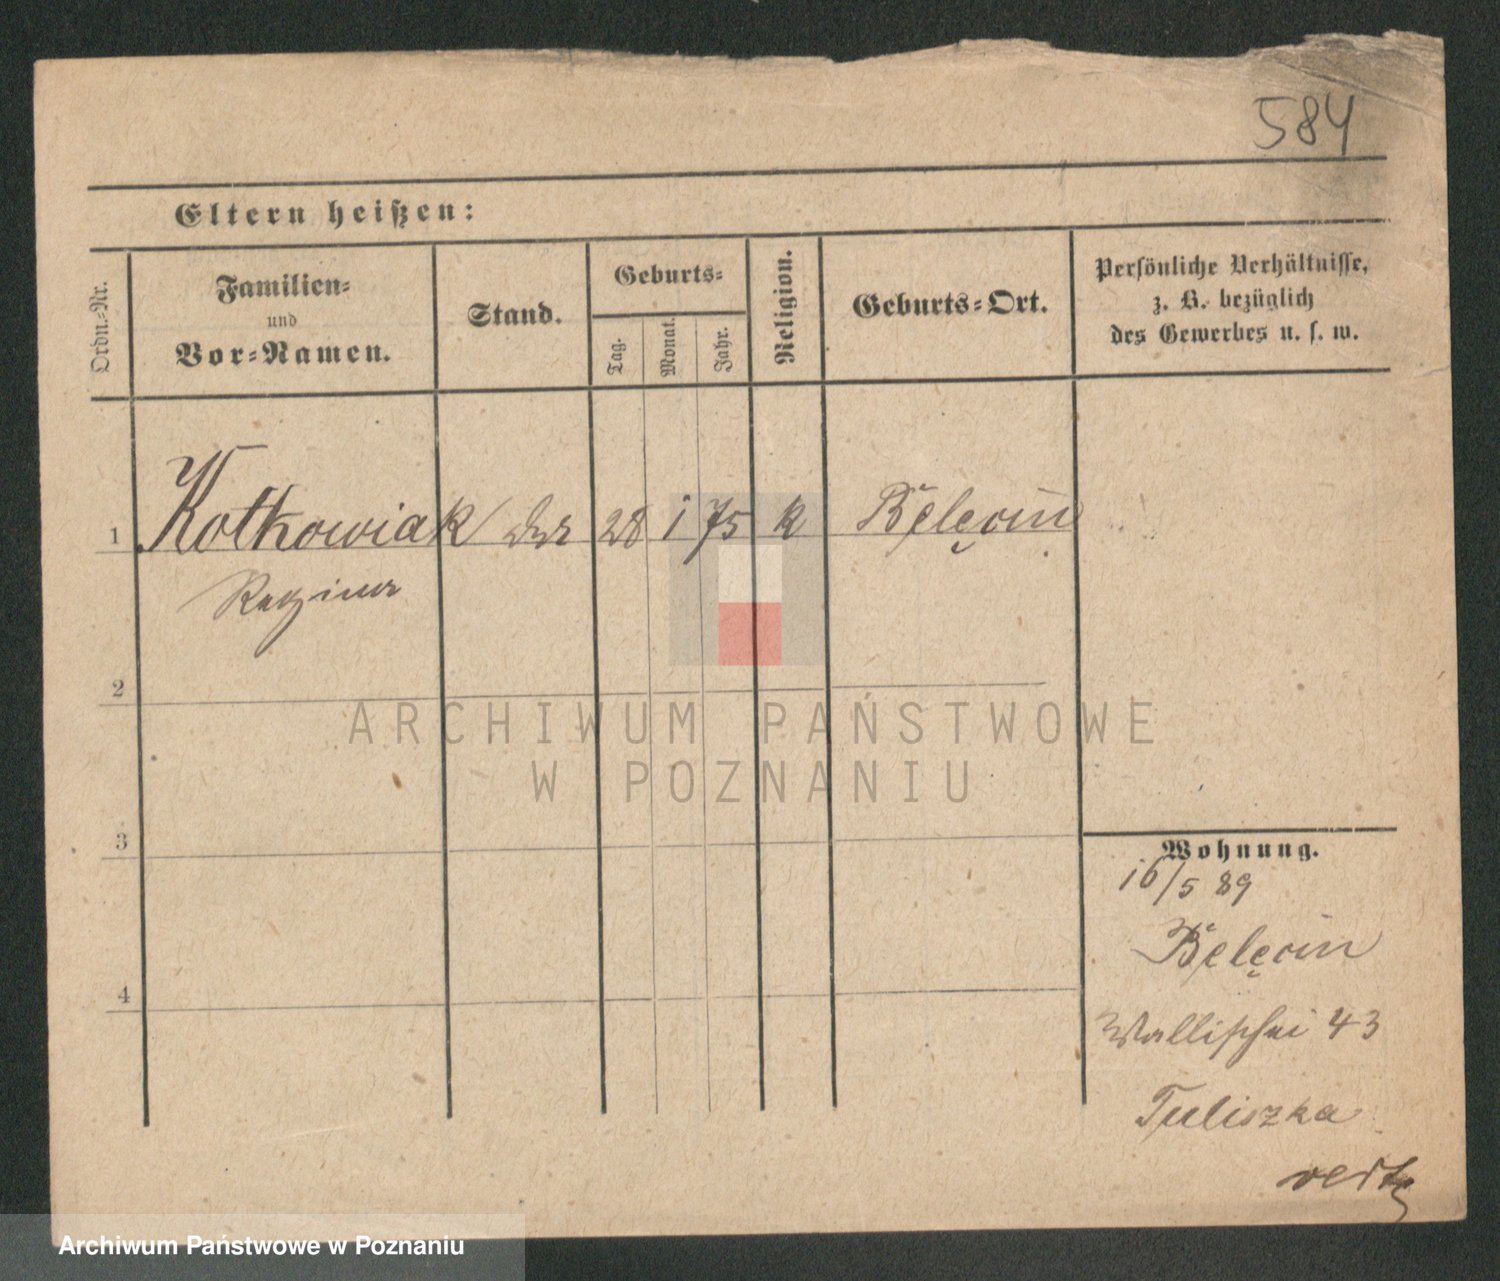 584
Eltern heißen:
Ordn.-Nr.
Familien-
und
Vor-Namen.
Stand.
Geburts-
Tag.
Monat.
Jahr.
Religion.
Geburts-Ort.
Persönliche Verhältnisse,
z. B. bezüglich
des Gewerbes u. s. w.
1 Kotkowiak 28 1 75 k Belęcin
Regina
2
ARCHIWUM PAŃSTWOWE
W POZNANIU
3
Wohnung.
16/5 89
Belęcin
4
Wallischei 43
Tuliszka
Archiwum Państwowe w Poznaniu